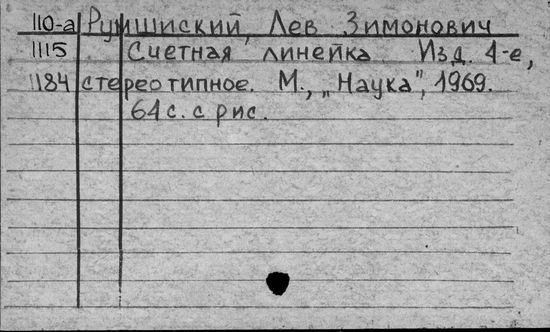 110-а Румшиский, Лев Зимонович
1115 Счетная линейка. Изд. 4-е,
1184 стереотипное. М., „Наука", 1969.
64 с. с рис.